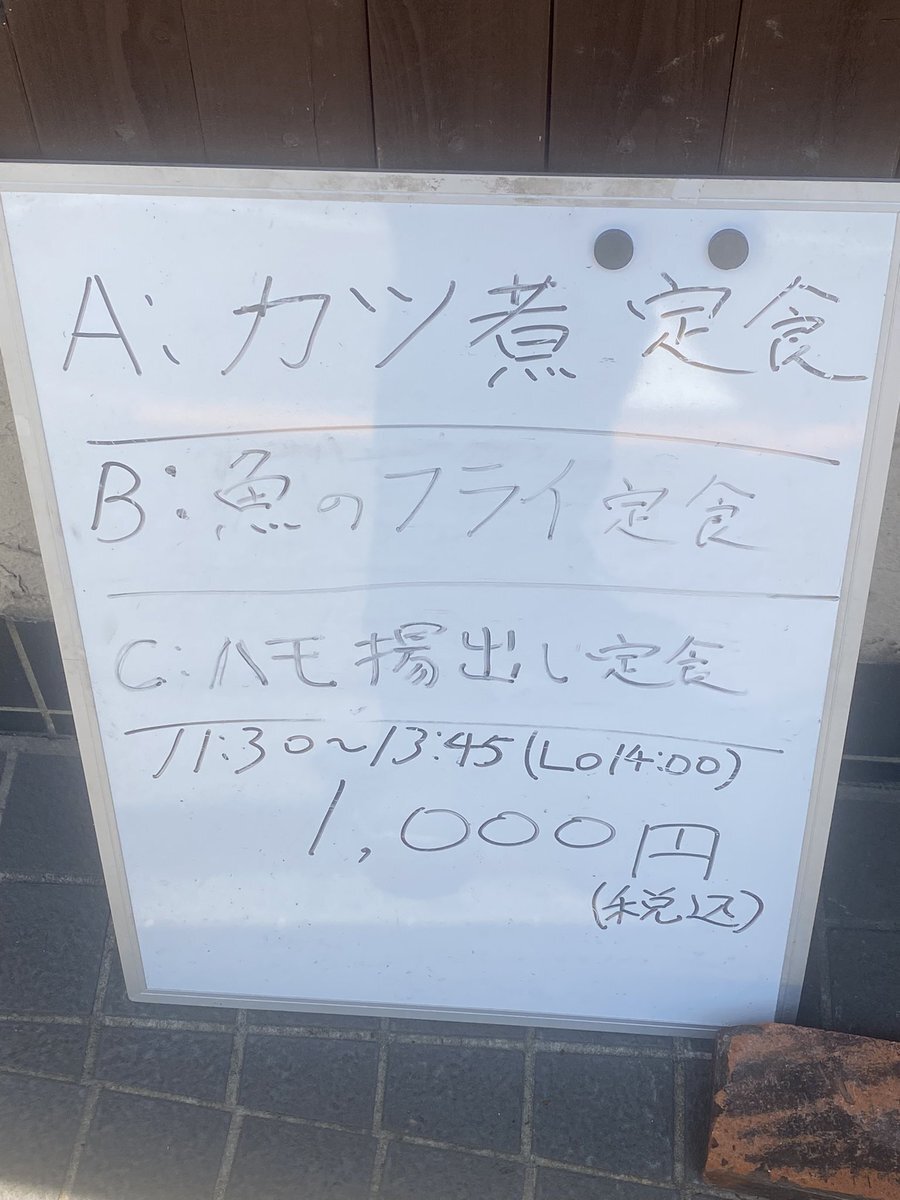 A: カツ煮定食
B: 魚のフライ定食
C: ハモ揚出し定食
11:30~13:45(LO14:00)
1,000円
(税込)